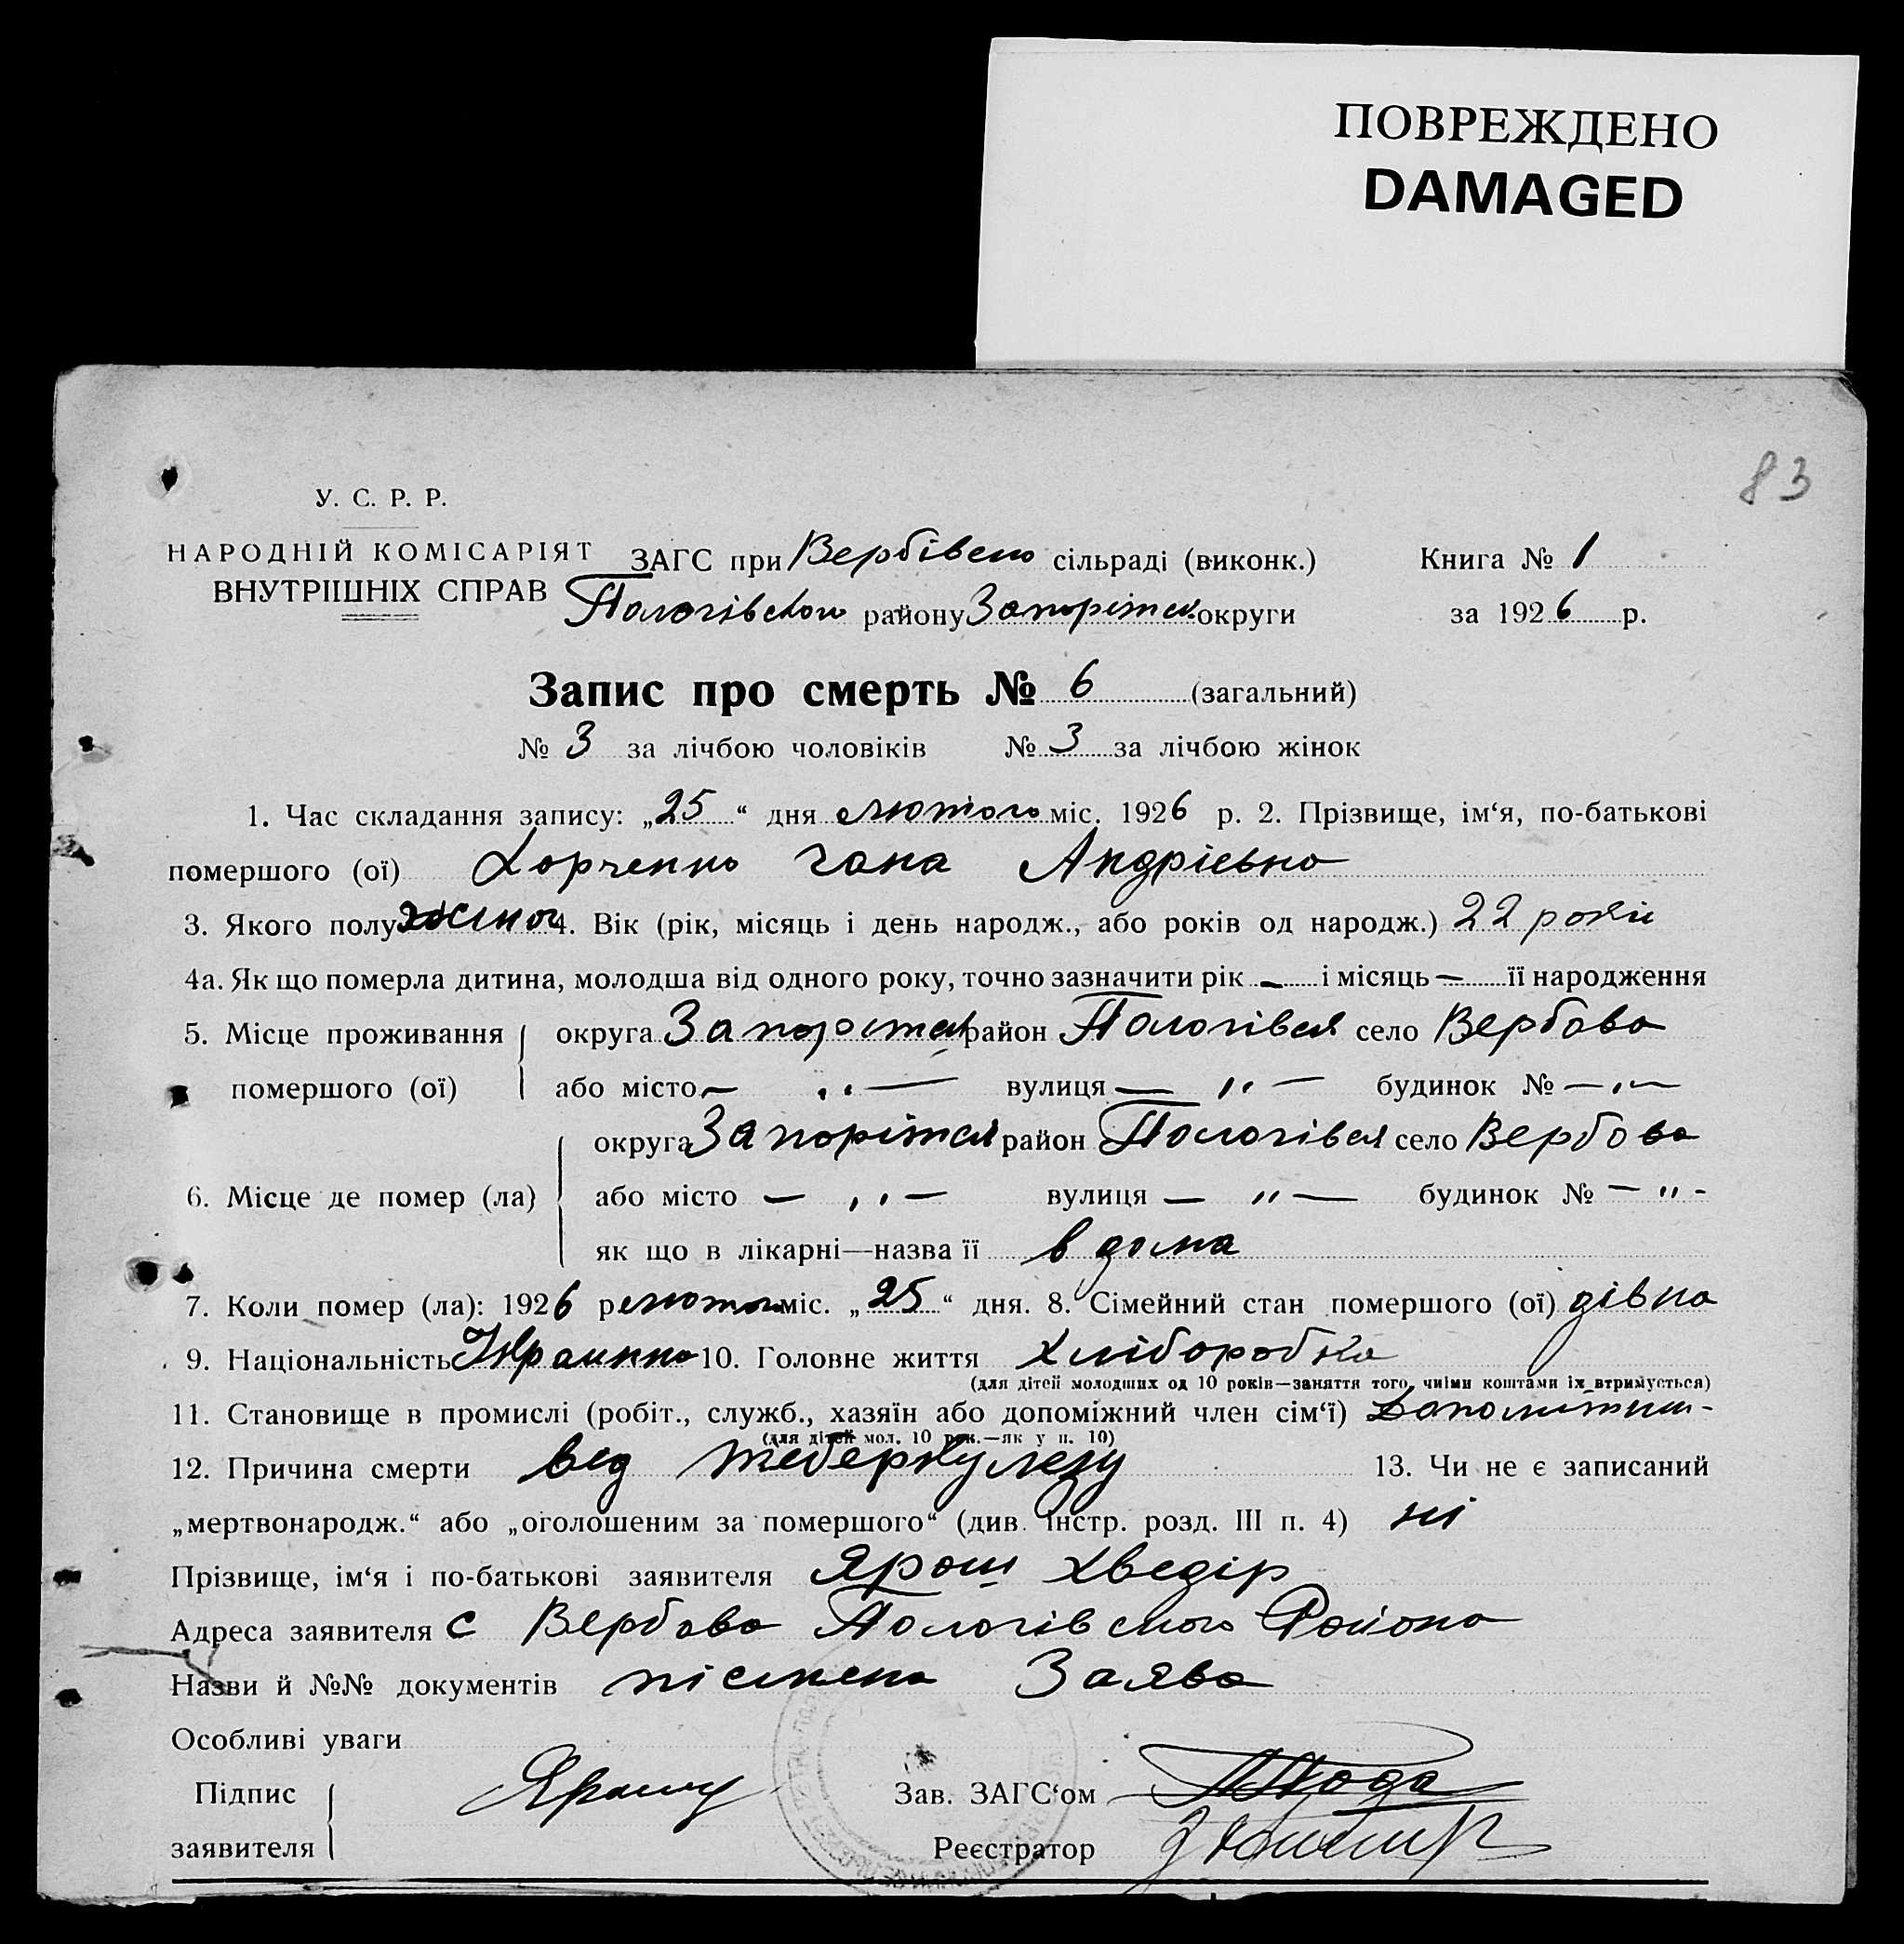 ПОВРЕЖДЕНО
DAMAGED
83
У. С. Р. Р.
НАРОДНІЙ КОМІСАРІЯТ
ВНУТРІШНІХ СПРАВ
ЗАГС при Вербівськ сільраді (виконк.) Книга № 1
Пологівського району Запорітськ округи за 1926 р.
Запис про смерть № 6 (загальний)
№ 3 за лічбою чоловіків № 3 за лічбою жінок
1. Час складання запису: „25“ дня лютого міс. 1926 р. 2. Прізвище, ім‘я, по-батькові
помершого (ої) Хорченко Гана Андрієвна
3. Якого полу жіноч 4. Вік (рік, місяць і день народж., або років од народж.) 22 роки
4а. Як що померла дитина, молодша від одного року, точно зазначити рік — і місяць — її народження
5. Місце проживання округа район Пологівськ село Вербова
помершого (ої) або місто — „ — вулиця — „ — будинок № — „ —
округа Запорітськ район Пологівськ село Вербова
6. Місце де помер (ла) або місто — „ — вулиця — „ — будинок № — „ -
як що в лікарні—назва її в дома
7. Коли помер (ла): 1926 р. лютого міс. „25“ дня. 8. Сімейний стан помершого (ої) дівка
9. Національність 10. Головне життя хліборобка
(для дітей молодших од 10 років—заняття того, чиїми коштами їх втримується)
11. Становище в промислі (робіт., служб., хазяїн або допоміжний член сім‘ї)
(для дітей мол. 10 рок.—як у п. 10)
12. Причина смерти від теберкулезу 13. Чи не є записаний
„мертвонародж.“ або „оголошеним за помершого“ (див. Інстр. розд. III п. 4) ні
Прізвище, ім‘я і по-батькові заявителя Ярош Хведір
Адреса заявителя с Вербова Пологівського Района
Назви й №№ документів пісмена Заява
Особливі уваги
Підпис
заявителя
Зав. ЗАГС‘ом
Реєстратор